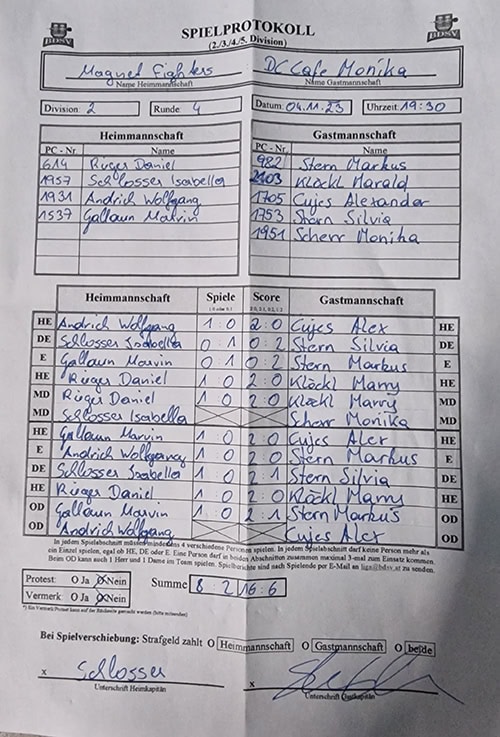 BDSV SPIELPROTOKOLL BDSV
(2./3./4./5. Division)
Magnet Fighters DC Cafe Monika
Name Heimmannschaft Name Gastmannschaft
Division: 2 Runde: 4 Datum: 04.11.23 Uhrzeit: 19:30
Heimmannschaft Gastmannschaft
PC - Nr. Name PC - Nr. Name
614 Rüger Daniel 982 Stern Markus
1957 Schlosser Isabella 2103 Klöckl Harald
1931 Andrich Wolfgang 1705 Cujes Alexander
1537 Gallaun Marvin 1753 Stern Silvia
1951 Scherr Monika
Heimmannschaft Spiele Score Gastmannschaft
HE Andrich Wolfgang 1 : 0 2 : 0 Cujes Alex HE
DE Schlosser Isabella 0 : 1 0 : 2 Stern Silvia DE
E Gallaun Marvin 0 : 1 0 : 2 Stern Markus E
HE Rüger Daniel 1 : 0 2 : 0 Klöckl Harry HE
MD Rüger Daniel 1 : 0 2 : 0 Klöckl Harry MD
MD Schlosser Isabella Scherr Monika MD
HE Gallaun Marvin 1 : 0 2 : 0 Cujes Alex HE
E Andrich Wolfgang 1 : 0 2 : 0 Stern Markus E
DE Schlosser Isabella 1 : 0 2 : 1 Stern Silvia DE
HE Rüger Daniel 1 : 0 2 : 0 Klöckl Harry HE
OD Gallaun Marvin 1 : 0 2 : 1 Stern Markus OD
OD Andrich Wolfgang Cujes Alex OD
In jedem Spielabschnitt müssen mindestens 4 verschiedene Personen spielen. In jedem Spielabschnitt darf keine Person mehr als
ein Einzel spielen, egal ob HE, DE oder E. Eine Person darf in beiden Abschnitten zusammen maximal 3-mal zum Einsatz kommen.
Beim OD kann auch 1 Herr und 1 Dame im Team spielen. Spielberichte sind nach Spielende per E-Mail an liga@bdsv.at zu senden.
Protest: O Ja O Nein Summe 8 : 2 16 : 6
Vermerk: O Ja O Nein
Bei Spielverschiebung: Strafgeld zahlt O Heimmannschaft O Gastmannschaft O beide
x Schlosser x
Unterschrift Heimkapitän Unterschrift Gastkapitän